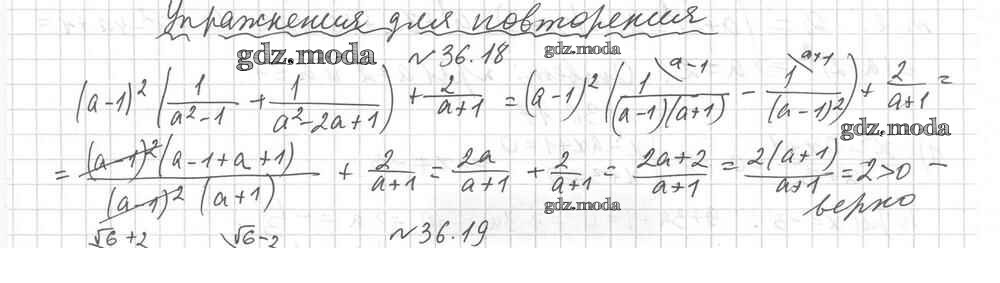 Упражнения для повторения
gdz.moda №36.18 gdz.moda
(a-1)² (1/(a²-1) + 1/(a²-2a+1)) + 2/(a+1) = (a-1)² (1/((a-1)(a+1)) \a-1 - 1/((a-1)²) \a+1) + 2/(a+1) =
gdz.moda
= (a-1)²(a-1+a+1)/((a-1)²(a+1)) + 2/(a+1) = 2a/(a+1) + 2/(a+1) = (2a+2)/(a+1) = 2(a+1)/(a+1) = 2>0 –
gdz.moda верно
√6+2 √6-2 №36.19